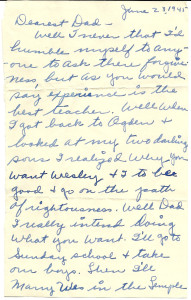 June 23, 1941
Dearest Dad -
Well I never that I'd
humble myself to any-
one to ask there forgive-
ness, but as you would
say experience is the
best teacher. Well When
I got back to Ogden &
looked at my two darling
sons I realized why you
want Wesley & I to be
good & go on the path
of rightousness. Well Dad
I really intend doing
what you want. I'll go to
Sunday school & take
our boys. Then I'll
Marry Wes in the Temple